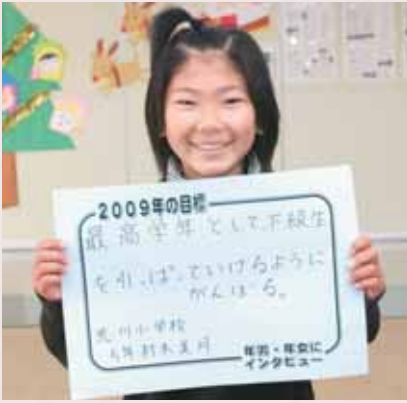 2009年の目標
最高学年として下級生
を引っぱっていけるように
がんばる。
荒川小学校
5年 村木美月
年男・年女に
インタビュー